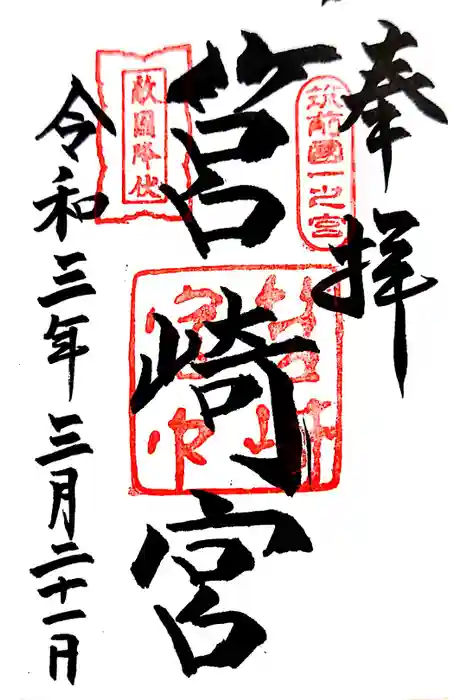 奉拝
筑前國一之宮
筥崎宮
敵国降伏
令和三年三月二十一日